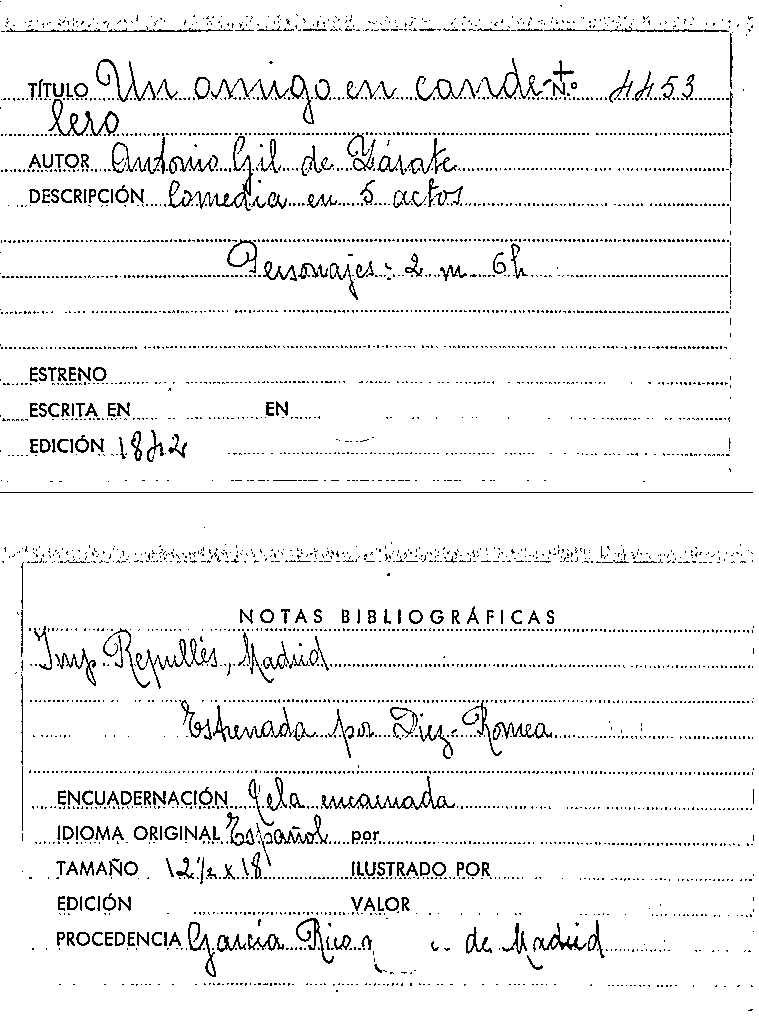 TÍTULO Un amigo en cande- N.º 4453
lero
AUTOR Antonio Gil de Zárate
DESCRIPCIÓN Comedia en 5 actos
Personajes: 2 m. 6h
ESTRENO
ESCRITA EN EN
EDICIÓN 1842
NOTAS BIBLIOGRÁFICAS
Imp. Repullés, Madrid
Estrenada por Diez-Romea
ENCUADERNACIÓN Tela encarnada
IDIOMA ORIGINAL Español por
TAMAÑO 12½ x 18 ILUSTRADO POR
EDICIÓN VALOR
PROCEDENCIA García Rico de Madrid